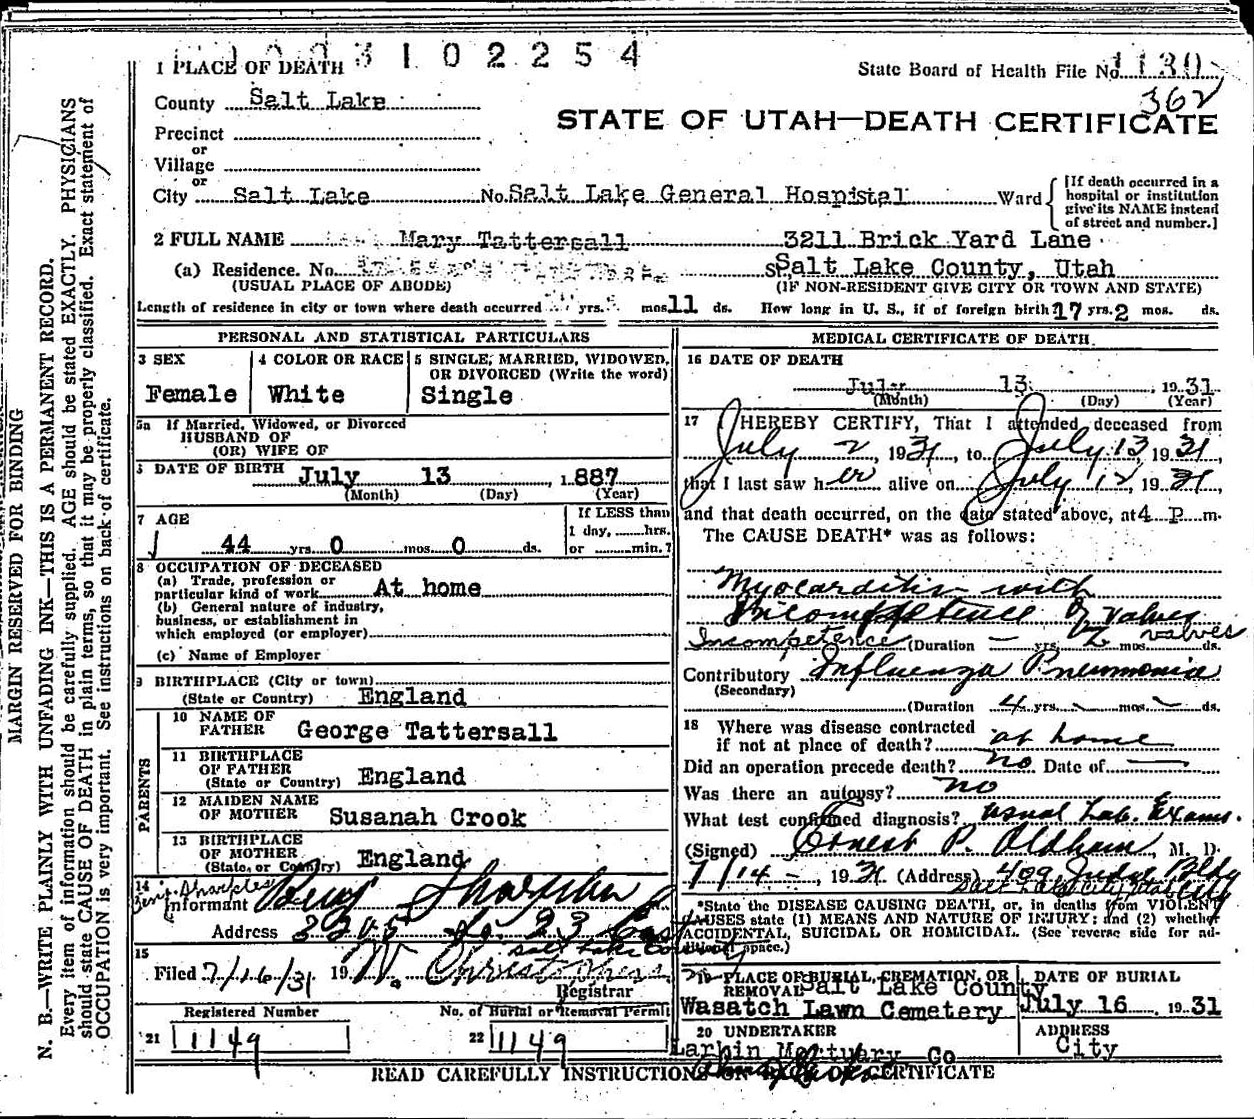 3102254
1 PLACE OF DEATH
State Board of Health File No. 1130
362
County Salt Lake
STATE OF UTAH—DEATH CERTIFICATE
Precinct
or
Village
or
City Salt Lake No. Salt Lake General Hospistal Ward
[If death occurred in a
hospital or institution
give its NAME instead
of street and number.]
2 FULL NAME Mary Tattersall 3211 Brick Yard Lane
(a) Residence. No. Salt Lake County, Utah
(USUAL PLACE OF ABODE) (IF NON-RESIDENT GIVE CITY OR TOWN AND STATE)
Length of residence in city or town where death occurred yrs. mos. 11 ds. How long in U. S., if of foreign birth 17 yrs. 2 mos. ds.
PERSONAL AND STATISTICAL PARTICULARS
3 SEX
Female
4 COLOR OR RACE
White
5 SINGLE, MARRIED, WIDOWED,
OR DIVORCED (Write the word)
Single
5a If Married, Widowed, or Divorced
HUSBAND OF
(OR) WIFE OF
6 DATE OF BIRTH July 13, 1887
(Month) (Day) (Year)
7 AGE
44 yrs. 0 mos. 0 ds.
If LESS than
1 day, hrs.
or min.?
8 OCCUPATION OF DECEASED
(a) Trade, profession or
particular kind of work At home
(b) General nature of industry,
business, or establishment in
which employed (or employer)
(c) Name of Employer
9 BIRTHPLACE (City or town)
(State or Country) England
PARENTS
10 NAME OF
FATHER George Tattersall
11 BIRTHPLACE
OF FATHER
(State or Country) England
12 MAIDEN NAME
OF MOTHER Susanah Crook
13 BIRTHPLACE
OF MOTHER
(State or Country) England
14 Benj. Sharples
Informant Benj Sharples
Address 3205 So. 23 East
Salt Lake County
15
Filed 7/16/31 19 W. Christensen
Registrar
Registered Number
21 1149
No. of Burial or Removal Permit
22 1149
MEDICAL CERTIFICATE OF DEATH
16 DATE OF DEATH
July 13 1931
(Month) (Day) (Year)
17 I HEREBY CERTIFY, That I attended deceased from
July 2, 1931, to July 13 1931,
that I last saw her alive on July 12, 1931,
and that death occurred, on the date stated above, at 4 P. m.
The CAUSE DEATH* was as follows:
Myocarditis with
Incompetence of valves
Incompetence of valves
(Duration yrs. mos. ds.
Contributory Influenza Pneumonia
(Secondary)
(Duration 4 yrs. mos. ds.
18 Where was disease contracted
if not at place of death? at home
Did an operation precede death? no Date of
Was there an autopsy? no
What test confirmed diagnosis? usual Lab. Exams.
(Signed) Ernest P. Oldham, M. D.
7/14 -, 1931 (Address) 409 Judge Bldg
Salt Lake City, Utah City
*State the DISEASE CAUSING DEATH, or, in deaths from VIOLENT
CAUSES state (1) MEANS AND NATURE OF INJURY; and (2) whether
ACCIDENTAL, SUICIDAL OR HOMICIDAL. (See reverse side for ad-
ditional space.)
19 PLACE OF BURIAL, CREMATION, OR
REMOVAL Salt Lake County
Wasatch Lawn Cemetery
DATE OF BURIAL
July 16, 1931
20 UNDERTAKER
Larkin Mortuary Co
ADDRESS
City
READ CAREFULLY INSTRUCTIONS ON BACK OF CERTIFICATE
MARGIN RESERVED FOR BINDING
N. B.—WRITE PLAINLY WITH UNFADING INK—THIS IS A PERMANENT RECORD.
Every item of information should be carefully supplied. AGE should be stated EXACTLY. PHYSICIANS
should state CAUSE OF DEATH in plain terms, so that it may be properly classified. Exact statement of
OCCUPATION is very important. See instructions on back of certificate.